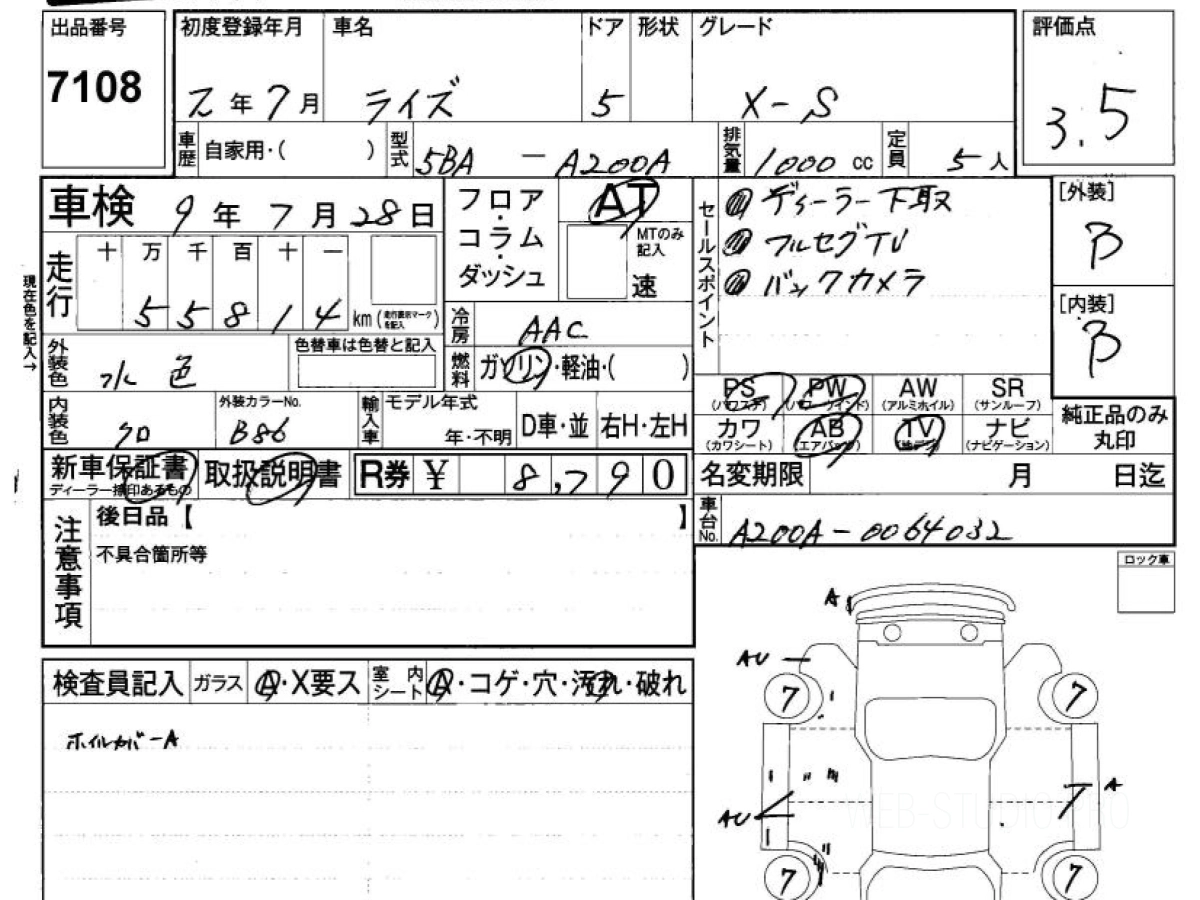 出品番号 初度登録年月 車名 ドア 形状 グレード 評価点
7108 2年7月 ライズ 5 X-S 3.5
車歴 自家用・( ) 型式 5BA - A200A 排気量 1000 cc 定員 5人
車検 9年7月28日 フロア・コラム・ダッシュ AT MTのみ記入 速
セールスポイント
① ディーラー下取
② フルセグTV
③ バックカメラ
[外装] B
[内装] B
現在色を記入→
走行 十 万 千 百 十 一
5 5 8 1 4 km (走行表示マークを記入)
冷房 AAC
外装色 水色 色替車は色替と記入
燃料 ガソリン・軽油・( )
内装色 クロ 外装カラーNo. B86 輸入車 モデル年式 年・不明 D車・並 右H・左H
PS (パワステ) PW (パワーウインド) AW (アルミホイル) SR (サンルーフ)
カワ (カワシート) AB (エアバッグ) TV (地デジ) ナビ (ナビゲーション)
純正品のみ丸印
新車保証書 ディーラー捺印あるもの 取扱説明書 R券 ¥ 8,790
名変期限 月 日迄
車台No. A200A-0064032
注意事項 後日品【 】
不具合箇所等
ロック車
検査員記入 ガラス A・X要ス 室内シート A・コゲ・穴・汚れ・破れ
ホイルカバーA
A
AU
7 7
A
AU
7 7
WEB-STUDIO PRO